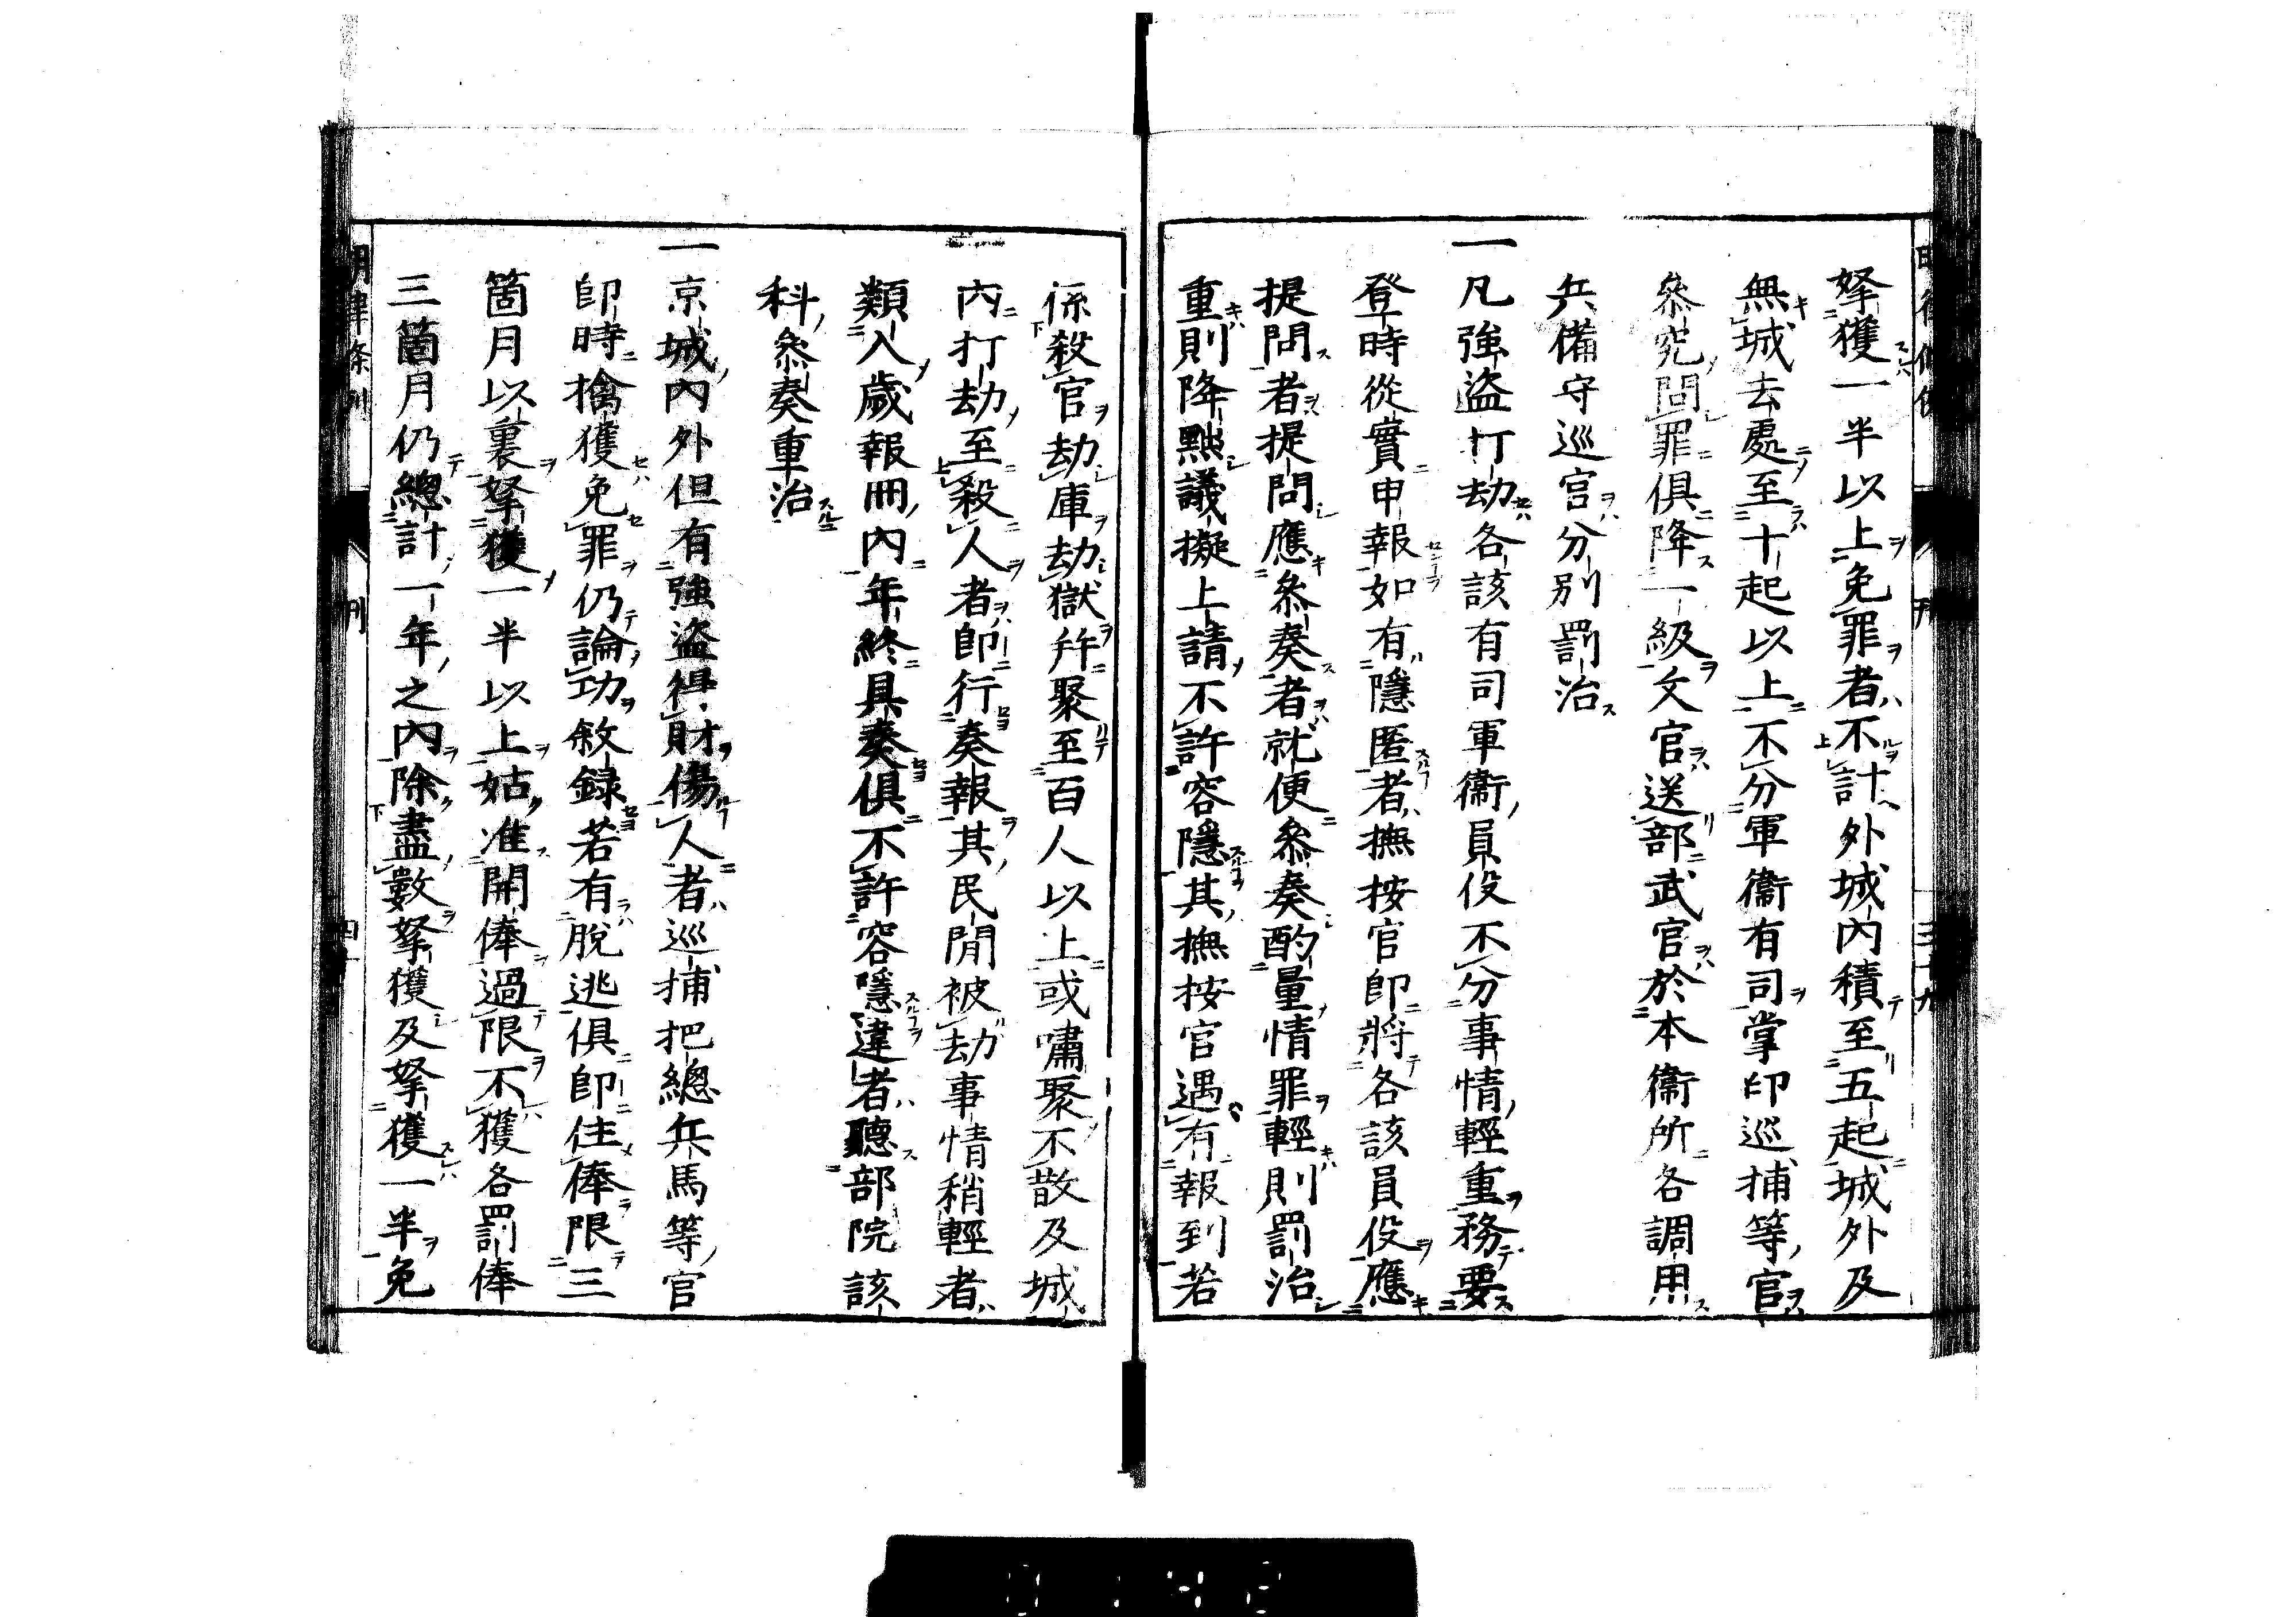 拏獲一半以上免罪者不計外城内積至五起城外及
無城去處至十起以上不分軍衞有司掌印巡捕等官
叅究問罪俱降一級文官送部武官於本衞所各調用
兵備守巡官分別罰治
一凡強盜打劫各該有司軍衞員役不分事情輕重務要
登時從實申報如有隱匿者撫按官卽將各該員役應
提問者提問應叅奏者就便叅奏酌量情罪輕則罰治
重則降黜議擬上請不許容隱其撫按官遇有報到若
係殺官劫庫劫獄幷聚至百人以上或嘯聚不散及城
内打劫至殺人者卽行奏報其民間被劫事情稍輕者
類入歲報冊内年終具奏俱不許容隱違者聽部院該
科叅奏重治
一京城内外但有強盜得財傷人者巡捕把總兵馬等官
卽時擒獲免罪仍論功敘録若有脫逃俱卽住俸限三
箇月以裏拏獲一半以上姑准開俸過限不獲各罰俸
三箇月仍總計一年之内除盡數拏獲及拏獲一半免